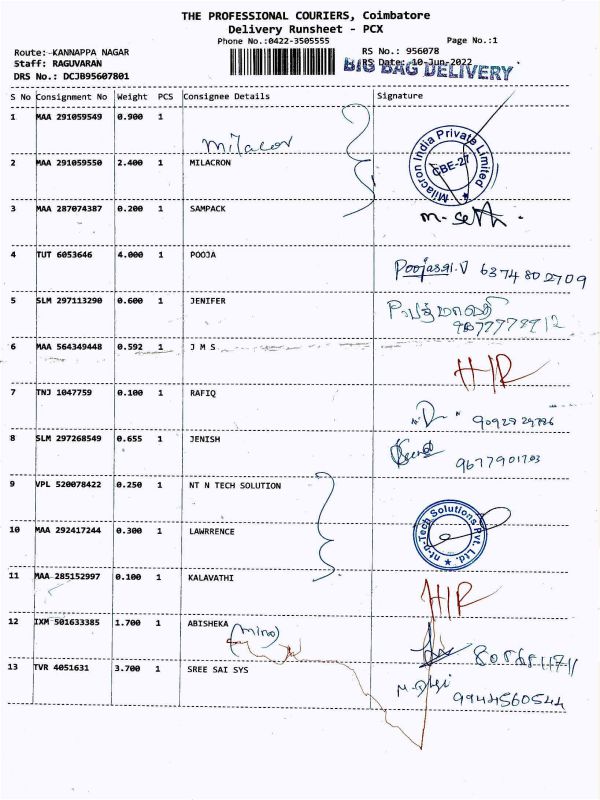 THE PROFESSIONAL COURIERS, Coimbatore
Delivery Runsheet - PCX
Phone No.:0422-3505555
Page No.:1
Route: KANNAPPA NAGAR
RS No.: 956078
Staff: RAGUVARAN
RS Date: 10-Jun-2022
BIG BAG DELIVERY
DRS No.: DCJB95607801
S No Consignment No Weight PCS Consignee Details Signature
1 MAA 291059549 0.900 1
Milacron India Private Limited
CBE-27
2 MAA 291059550 2.400 1 MILACRON
3 MAA 287074387 0.200 1 SAMPACK
4 TUT 6053646 4.000 1 POOJA
6374802709
5 SLM 297113290 0.600 1 JENIFER
6 MAA 564349448 0.592 1 J M S
H/R
7 TNJ 1047759 0.100 1 RAFIQ
8 SLM 297268549 0.655 1 JENISH
9 VPL 520078422 0.250 1 NT N TECH SOLUTION
nt-n-Tech Solutions Pvt. Ltd.
10 MAA 292417244 0.300 1 LAWRRENCE
11 MAA 285152997 0.100 1 KALAVATHI
H/R
12 IXM 501633385 1.700 1 ABISHEKA
13 TVR 4051631 3.700 1 SREE SAI SYS
9944560544